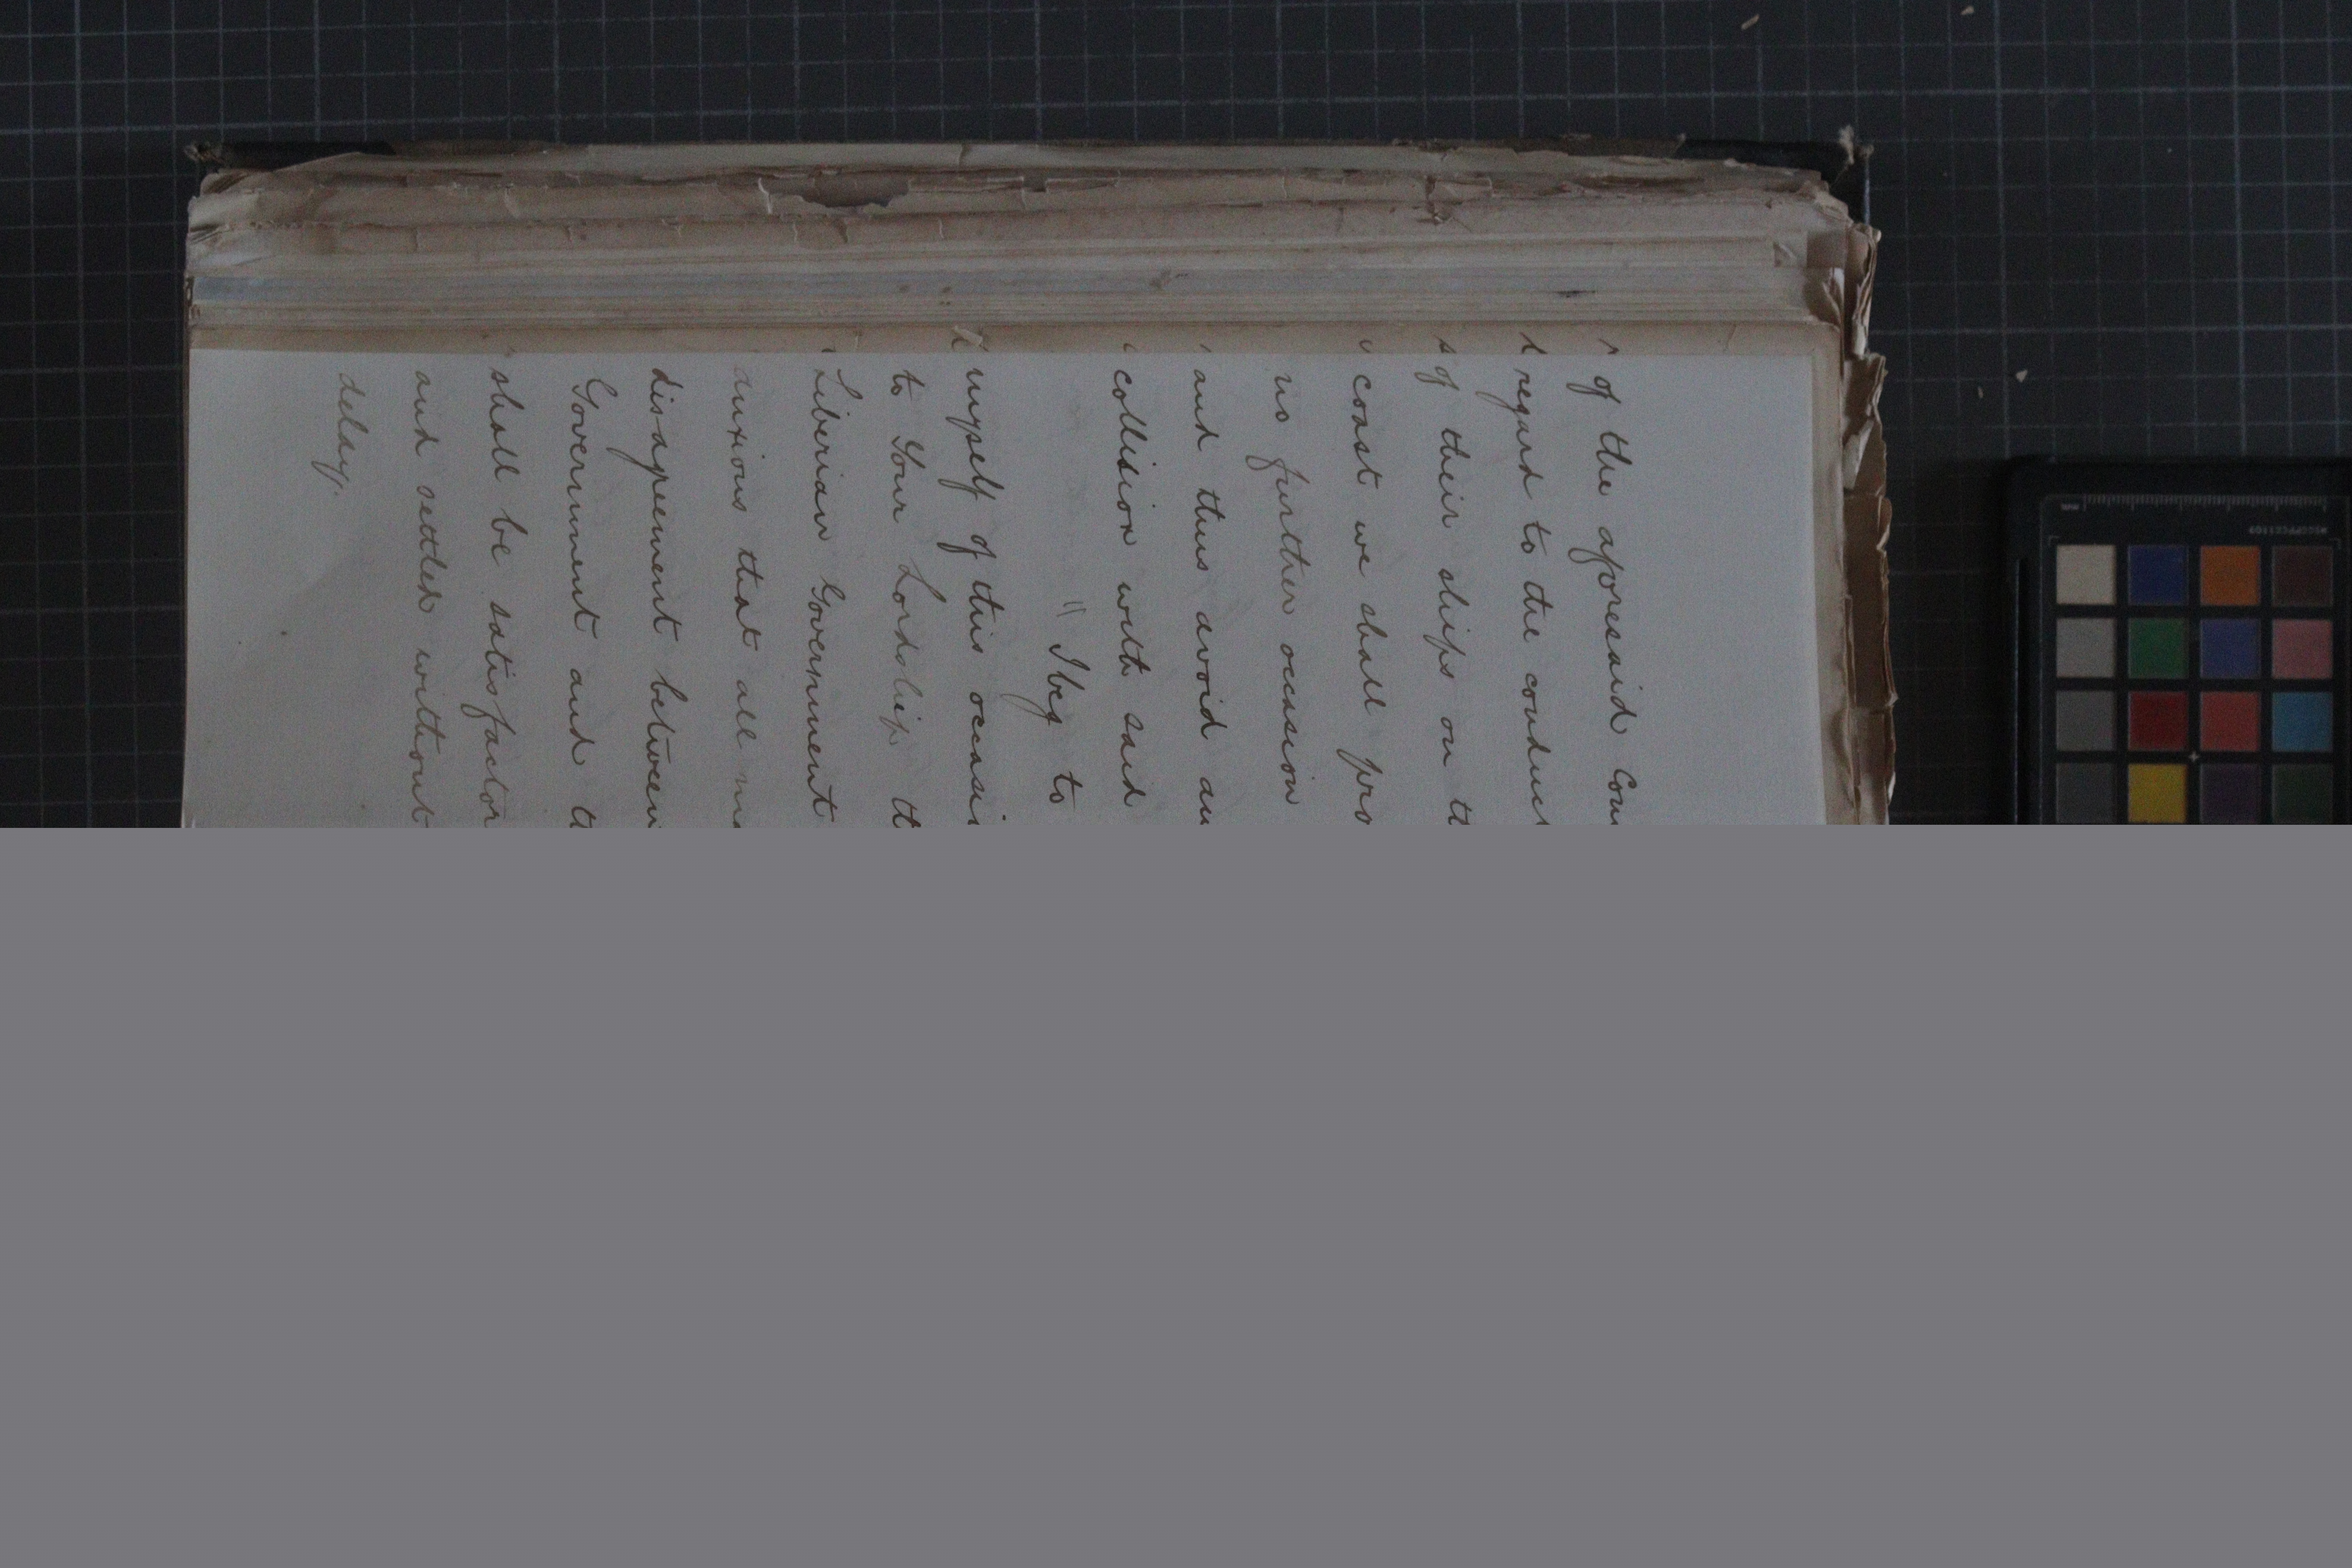 of the aforesaid Com
regard to the conduct
of their ships on th
coast we shall pro
no further occasion
and thus avoid an
collision with said
" I beg to
myself of this occasi
to Your Lordship th
Liberian Government
anxious that all
disagreement between
Government and t
shall be satisfactor
and settled without
delay.